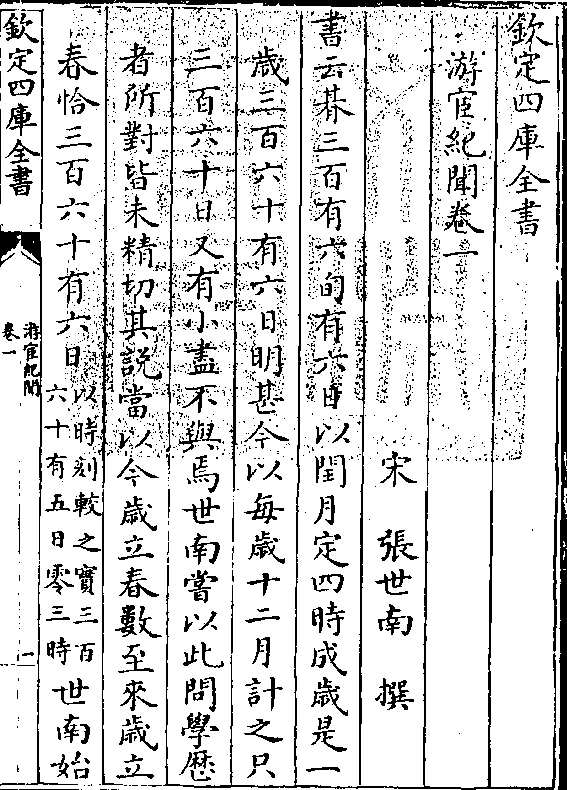 欽定四庫全書
游宦紀聞卷一
宋　張世南　撰
書云朞三百有六旬有六日以閏月定四時成歲是一
歲三百六十有六日明甚今以每歲十二月計之只
三百六十日又有小盡不與焉世南嘗以此問學厯
者所對皆未精切其說當以今歲立春數至來歲立
春恰三百六十有六日以時刻較之實三百六十有五日零三時世南始
欽定四庫全書
游宦紀聞
卷一
一